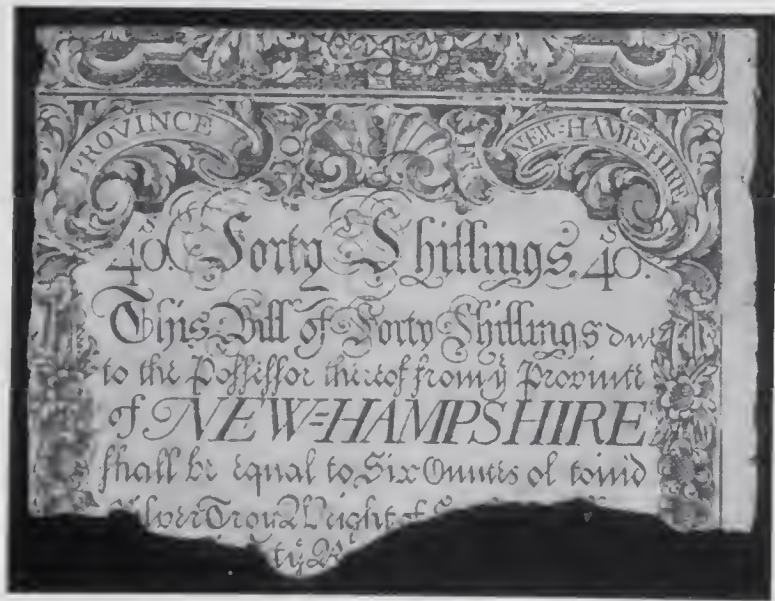 PROVINCE NEW=HAMPSHIRE
40.s Forty Shillings. 40.s
This Bill of Forty Shillings due
to the Possessor thereof from yͤ Province
of NEW=HAMPSHIRE
shall be equal to Six Ounces of coin'd
Silver Troy Weight of